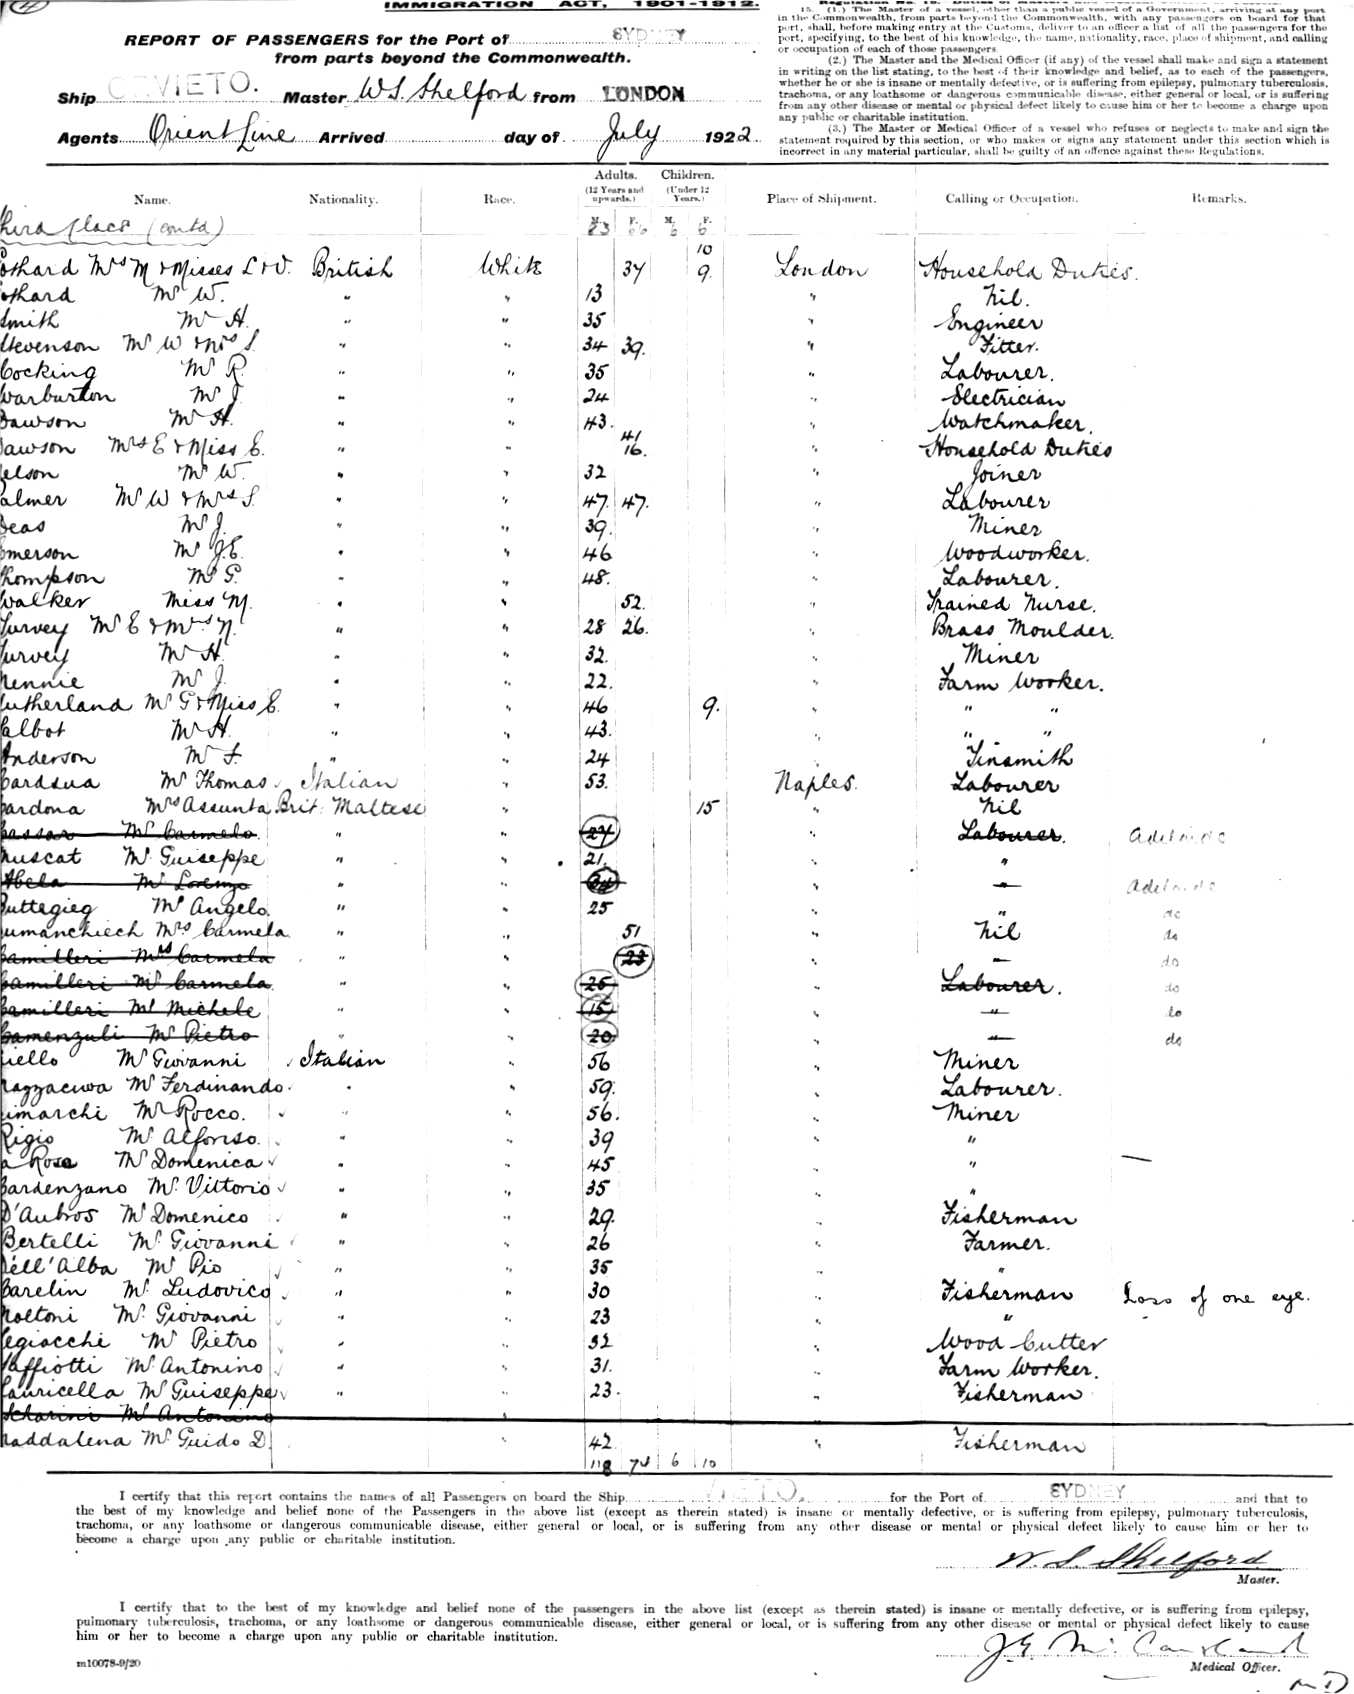 4
IMMIGRATION ACT, 1901-1912.
REPORT OF PASSENGERS for the Port of SYDNEY
from parts beyond the Commonwealth.
Ship ORVIETO. Master W.S. Shelford from LONDON
Agents Orient Line Arrived day of July 1922
15. (1.) The Master of a vessel, other than a public vessel of a Government, arriving at any port
in the Commonwealth, from parts beyond the Commonwealth, with any passengers on board for that
port, shall, before making entry at the Customs, deliver to an officer a list of all the passengers for the
port, specifying, to the best of his knowledge, the name, nationality, race, place of shipment, and calling
or occupation of each of those passengers.
(2.) The Master and the Medical Officer (if any) of the vessel shall make and sign a statement
in writing on the list stating, to the best of their knowledge and belief, as to each of the passengers,
whether he or she is insane or mentally defective, or is suffering from epilepsy, pulmonary tuberculosis,
trachoma, or any loathsome or dangerous communicable disease, either general or local, or is suffering
from any other disease or mental or physical defect likely to cause him or her to become a charge upon
any public or charitable institution.
(3.) The Master or Medical Officer of a vessel who refuses or neglects to make and sign the
statement required by this section, or who makes or signs any statement under this section which is
incorrect in any material particular, shall be guilty of an offence against these Regulations.
Name. Nationality. Race. Adults. (12 Years and upwards.) Children. (Under 12 Years.) Place of Shipment. Calling or Occupation. Remarks.
M. F. M. F.
hird class (contd) 83 66 6 6
10
othard Mrs M & Misses L & V. British White 34 9. London Household Duties.
othard Mr W. " " 13 " Nil.
Smith Mr H. " " 35 " Engineer
Stevenson Mr W & Mrs S. " " 34 39. " Fitter.
Cocking Mr R. " " 35 " Labourer.
Warburton Mr J. " " 24 " Electrician
Dawson Mr H. " " 43. " Watchmaker.
Dawson Mrs E & Miss E. " " 41 16. " Household Duties
elson Mr W. " " 32 " Joiner
almer Mr W & Mrs S. " " 47. 47. " Labourer
Deas Mr J. " " 39. " Miner
merson Mr J.E. " " 46 " Woodworker.
hompson Mr G. " " 48. " Labourer.
Walker Miss M. " " 52. " Trained Nurse.
Turvey Mr E & Mrs N. " " 28 26. " Brass Moulder.
Turvey Mr H. " " 32. " Miner
ennie Mr J. " " 22. " Farm Worker.
utherland Mr G & Miss E. " " 46 9. " " "
albot Mr H. " " 43. " " "
Anderson Mr F. " " 24 " Tinsmith
Cardsua Mr Thomas Italian " 53. Naples. Labourer
ardona Mrs Assunta Brit: Maltese " 15 " Nil
assar Mr Carmelo. " " 24 " Labourer. Adelaide
Muscat Mr Guiseppe " " 21. " "
Abela Mr Lorenzo " " " " Adelaide
Buttegieg Mr Angelo. " " 25 " " do
umanchiech Mrs Carmela " " 51 " Nil do
Camilleri Mrs Carmela " " 23 " " do
Camilleri Mr Carmela " " 25 " Labourer. do
Camilleri Mr Michele " " 15 " " do
Camenzuli Mr Pietro " " 20 " " do
iello Mr Giovanni Italian " 56 " Miner
ragzacuva Mr Ferdinando. " " 59. " Labourer.
imarchi Mr Rocco. " " 56. " Miner
Rigio Mr Alfonso. " " 39 " "
a Rosa Mr Domenica " " 45 " " —
Gardenzano Mr Vittorio " " 35 " "
D'Aubros Mr Domenico " " 29. " Fisherman
Bertelli Mr Giovanni " " 26 " Farmer.
Dell'Alba Mr Pio " " 35 " "
Carelin Mr Ludovico " " 30 " Fisherman Loss of one eye.
Moltoni Mr Giovanni " 23 "
egiacchi Mr Pietro " " 32 " Wood Cutter
affiotti Mr Antonino " " 31. " Farm Worker.
auricella Mr Guiseppe " " 23. " Fisherman
Scharini Mr Antonino
addalena Mr Guido D. " 42 " Fisherman
118 74 6 10
I certify that this report contains the names of all Passengers on board the Ship VIETO. for the Port of SYDNEY and that to
the best of my knowledge and belief none of the Passengers in the above list (except as therein stated) is insane or mentally defective, or is suffering from epilepsy, pulmonary tuberculosis,
trachoma, or any loathsome or dangerous communicable disease, either general or local, or is suffering from any other disease or mental or physical defect likely to cause him or her to
become a charge upon any public or charitable institution.
W. S. Shelford
Master.
I certify that to the best of my knowledge and belief none of the passengers in the above list (except as therein stated) is insane or mentally defective, or is suffering from epilepsy,
pulmonary tuberculosis, trachoma, or any loathsome or dangerous communicable disease, either general or local, or is suffering from any other disease or mental or physical defect likely to cause
him or her to become a charge upon any public or charitable institution.
Medical Officer.
m10078-9/20